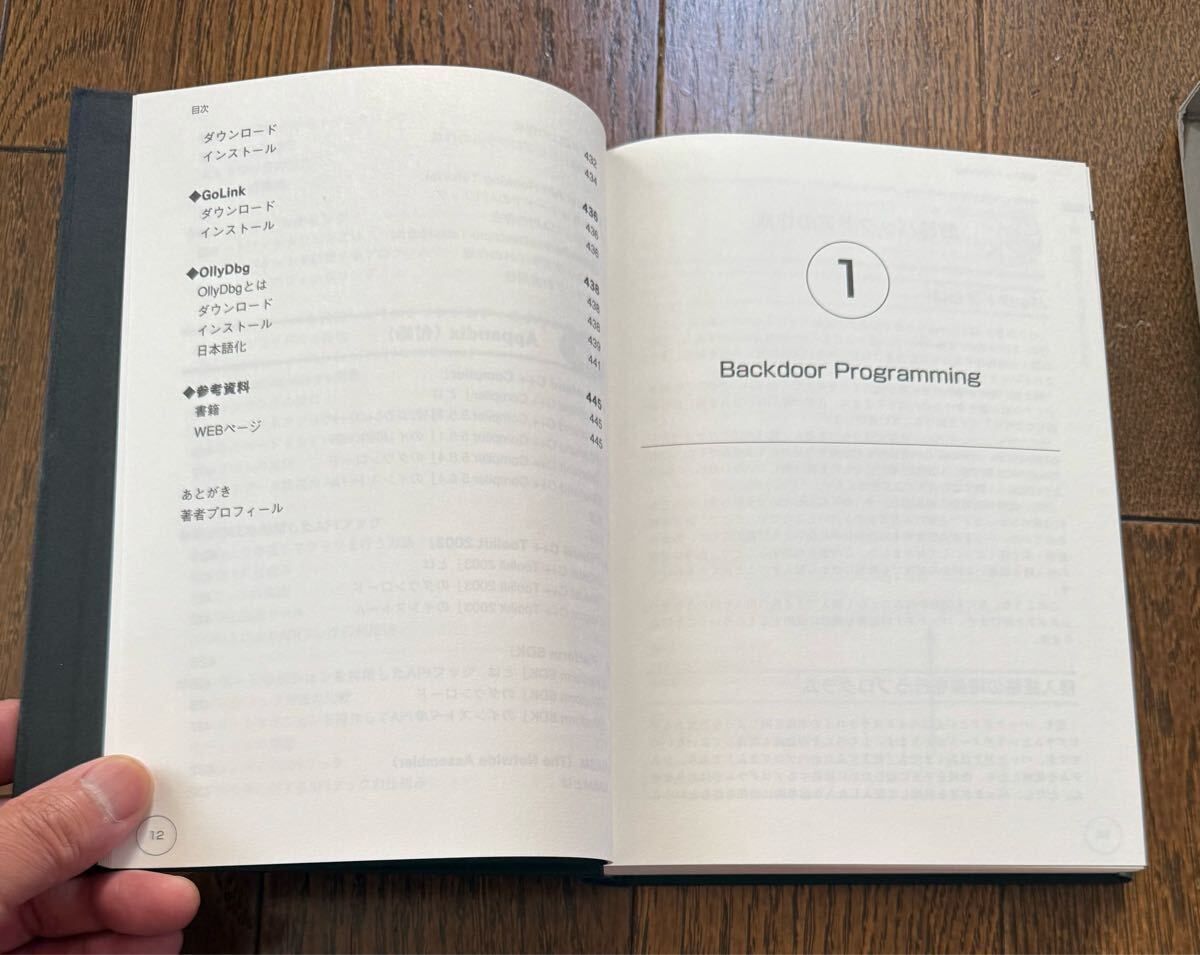 目次
ダウンロード 432
インストール 434
◆GoLink 436
ダウンロード 436
インストール 436
◆OllyDbg 438
OllyDbgとは 438
ダウンロード 438
インストール 439
日本語化 441
◆参考資料 445
書籍 445
WEBページ 445
あとがき
著者プロフィール
12
1
Backdoor Programming